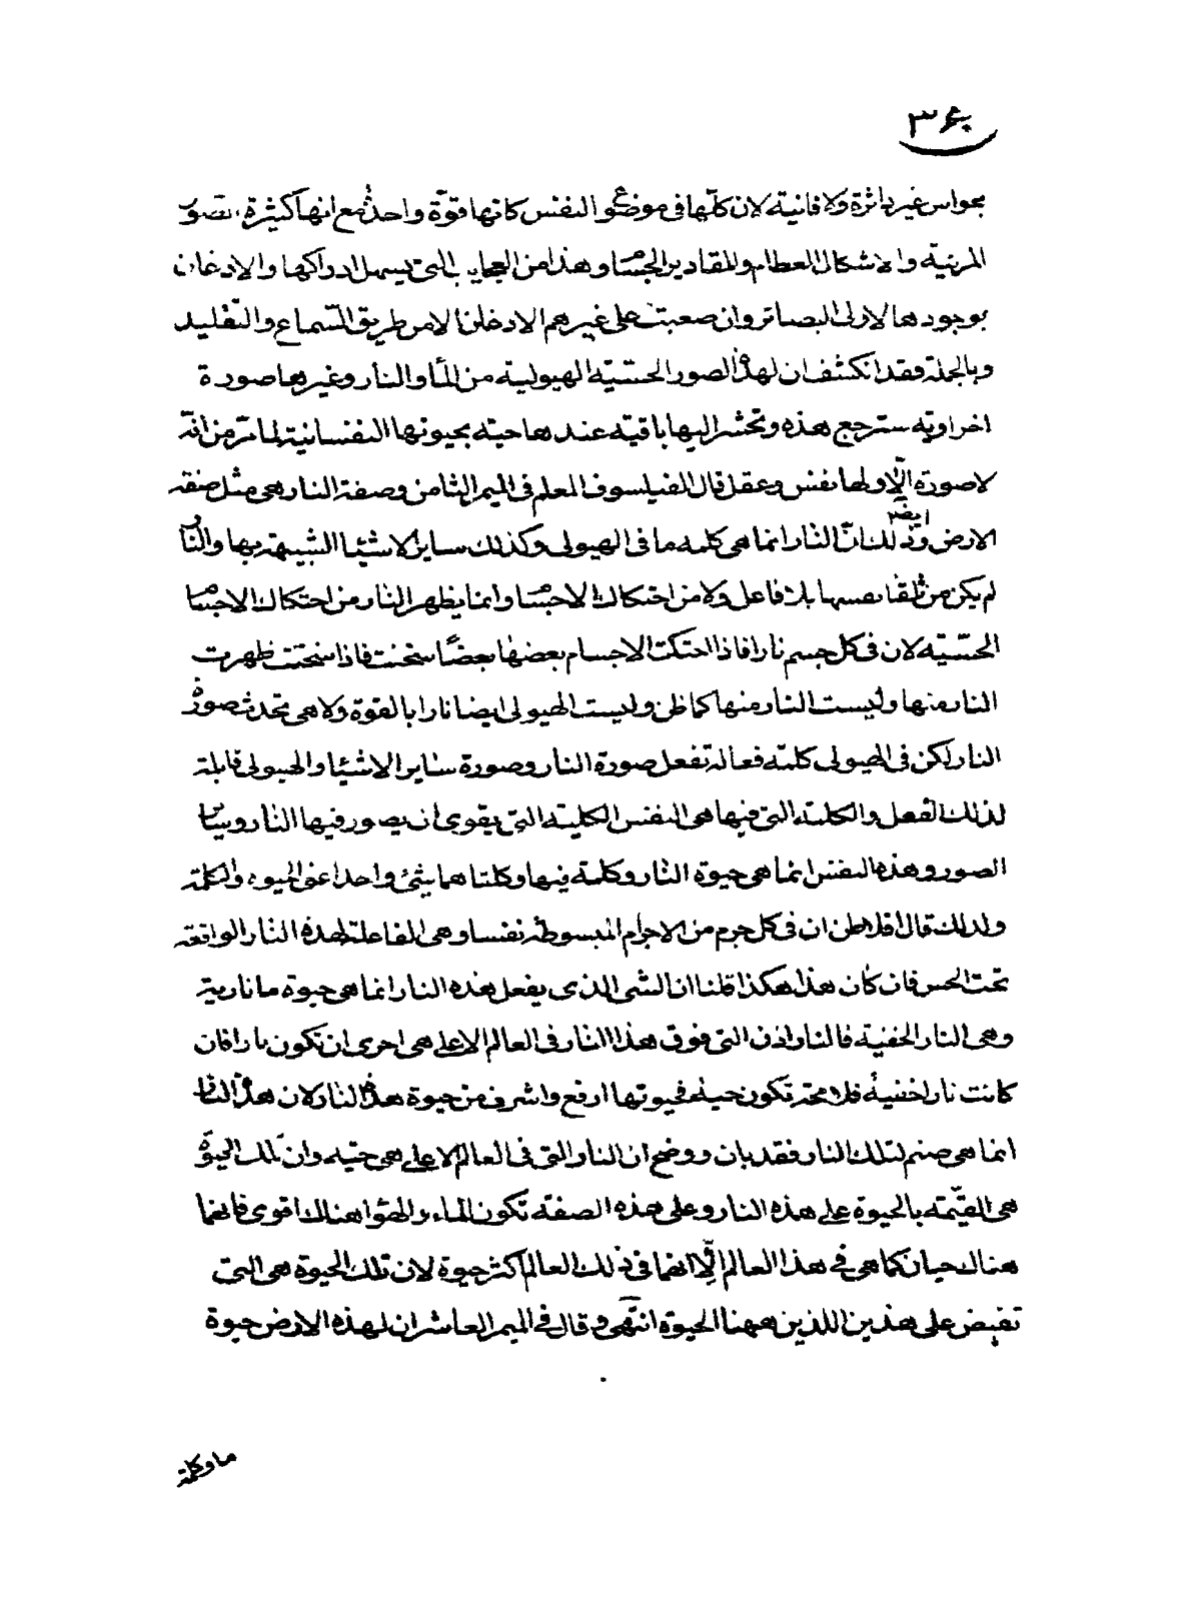 ٣۶٠
بحواس غير داثرة ولا فانية لان كلّها فى موضع والنفس كانها قوّة واحدة مع انها كثيرة، تصور
المرئية والاشكال العظام والمقادير الجسام وهذا من العجايب التى يسهل ادراكها والاذعان
بوجودها لاولى البصائر وان صعبت على غيرهم الاذعان الا من طريق السّماع والتقليد
وبالجملة فقد انكشف ان لهذه الصور الحسّيّة الهيولية من الماء والنار وغيرها صورة
اخراويّة سترجع هذه وتحشر اليها باقية عندها حيّة بحيوتها النفسانية لما مرّ من انّه
لا صورة الّا ولها نفس وعقل قال الفيلسوف المعلم فى الميمر الثامن وصفة النار هى مثل صفة
الارض ايضا وذلك انّ النار انما هى كلمه ما فى الهيولى وكذلك ساير الاشياء الشبيهة بها والنار
لم يكن من تلقاء نفسها بلا فاعل ولا من احتكاك الاجسام وانما يظهر النار من احتكاك الاجسام
الحسّيّه لان فى كل جسم نارا فاذا احتكت الاجسام بعضها بعضًا سخنت فاذا سخنت ظهرت
النار منها وليست النار منها كما ظن وليست الهيولى ايضا نارا بالقوة ولا هى تحدث صورة
النار لكن فى الهيولى كلمة فعالة تفعل صورة النار وصورة ساير الاشياء والهيولى قابلة
لذلك الفعل والكلمة التى فيها هى النفس الكلية التى يقوى ان يصور فيها النار وساير
الصور وهذه النفس انما هى حيوة النار وكلمة فيها وكلتاهما شئ واحد اعنى الحيوه والكلمة
ولذلك قال افلاطن ان فى كل جرم من الاجرام المبسوطة نفسا وهى الفاعلة لهذه النار الواقعة
تحت الحس فان كان هذا هكذا قلنا ان الشى الذى يفعل هذه النار انما هى حيوة ما نارية
وهى النار الخفية فالنار اذن التى فوق هذا النار فى العالم الاعلى هى احرى ان تكون نارا فان
كانت نارا خفية فلا محة تكون حية فحيوتها ارفع واشرف من حيوة هذه النار لان هذه النار
انما هى صنم لتلك النار فقد بان ووضح ان النار التى فى العالم الاعلى هى حيّه وان تلك الحيوة
هى القيّمة بالحيوة على هذه النار وعلى هذه الصفة تكون الماء والهواء هناك اقوى فانهما
هناك حيان كما هى فى هذا العالم الّا انهما فى ذلك العالم اكثر حيوة لان تلك الحيوة هى التى
تفيض على هذين اللذين ههنا الحيوة انتهى وقال فى الميمر العاشر ان لهذه الارض حيوة
ما وكلمة